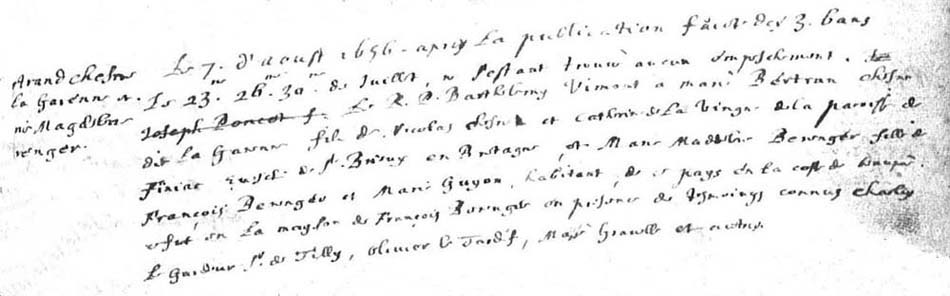 le 7. d'aoust 1656 apres la publication faicte des 3. bans
le 23.me 26.me 30.me de Juillet, ne s'estant trouvé aucun empeschement.
Joseph Poncet f. Le R. P. Barthelemy Vimont a marié Bertran Chesne
dit la Garenne fils de Nicolas Chesne et Catherine de La Vingne de la paroisse de
Finiac de St. Brieux en Bretagne, et Marie Madeleine Berenger fille de
François Berenger et Marie Guyon, habitant de ce pays en la coste de
en la mayson de François Berenger en presence de tesmoings connus Charles
le Gardeur Sr. de Tilly, olivier le Tardif, et autres.
Chesne
la Garenne et
Magdeleine
renger.